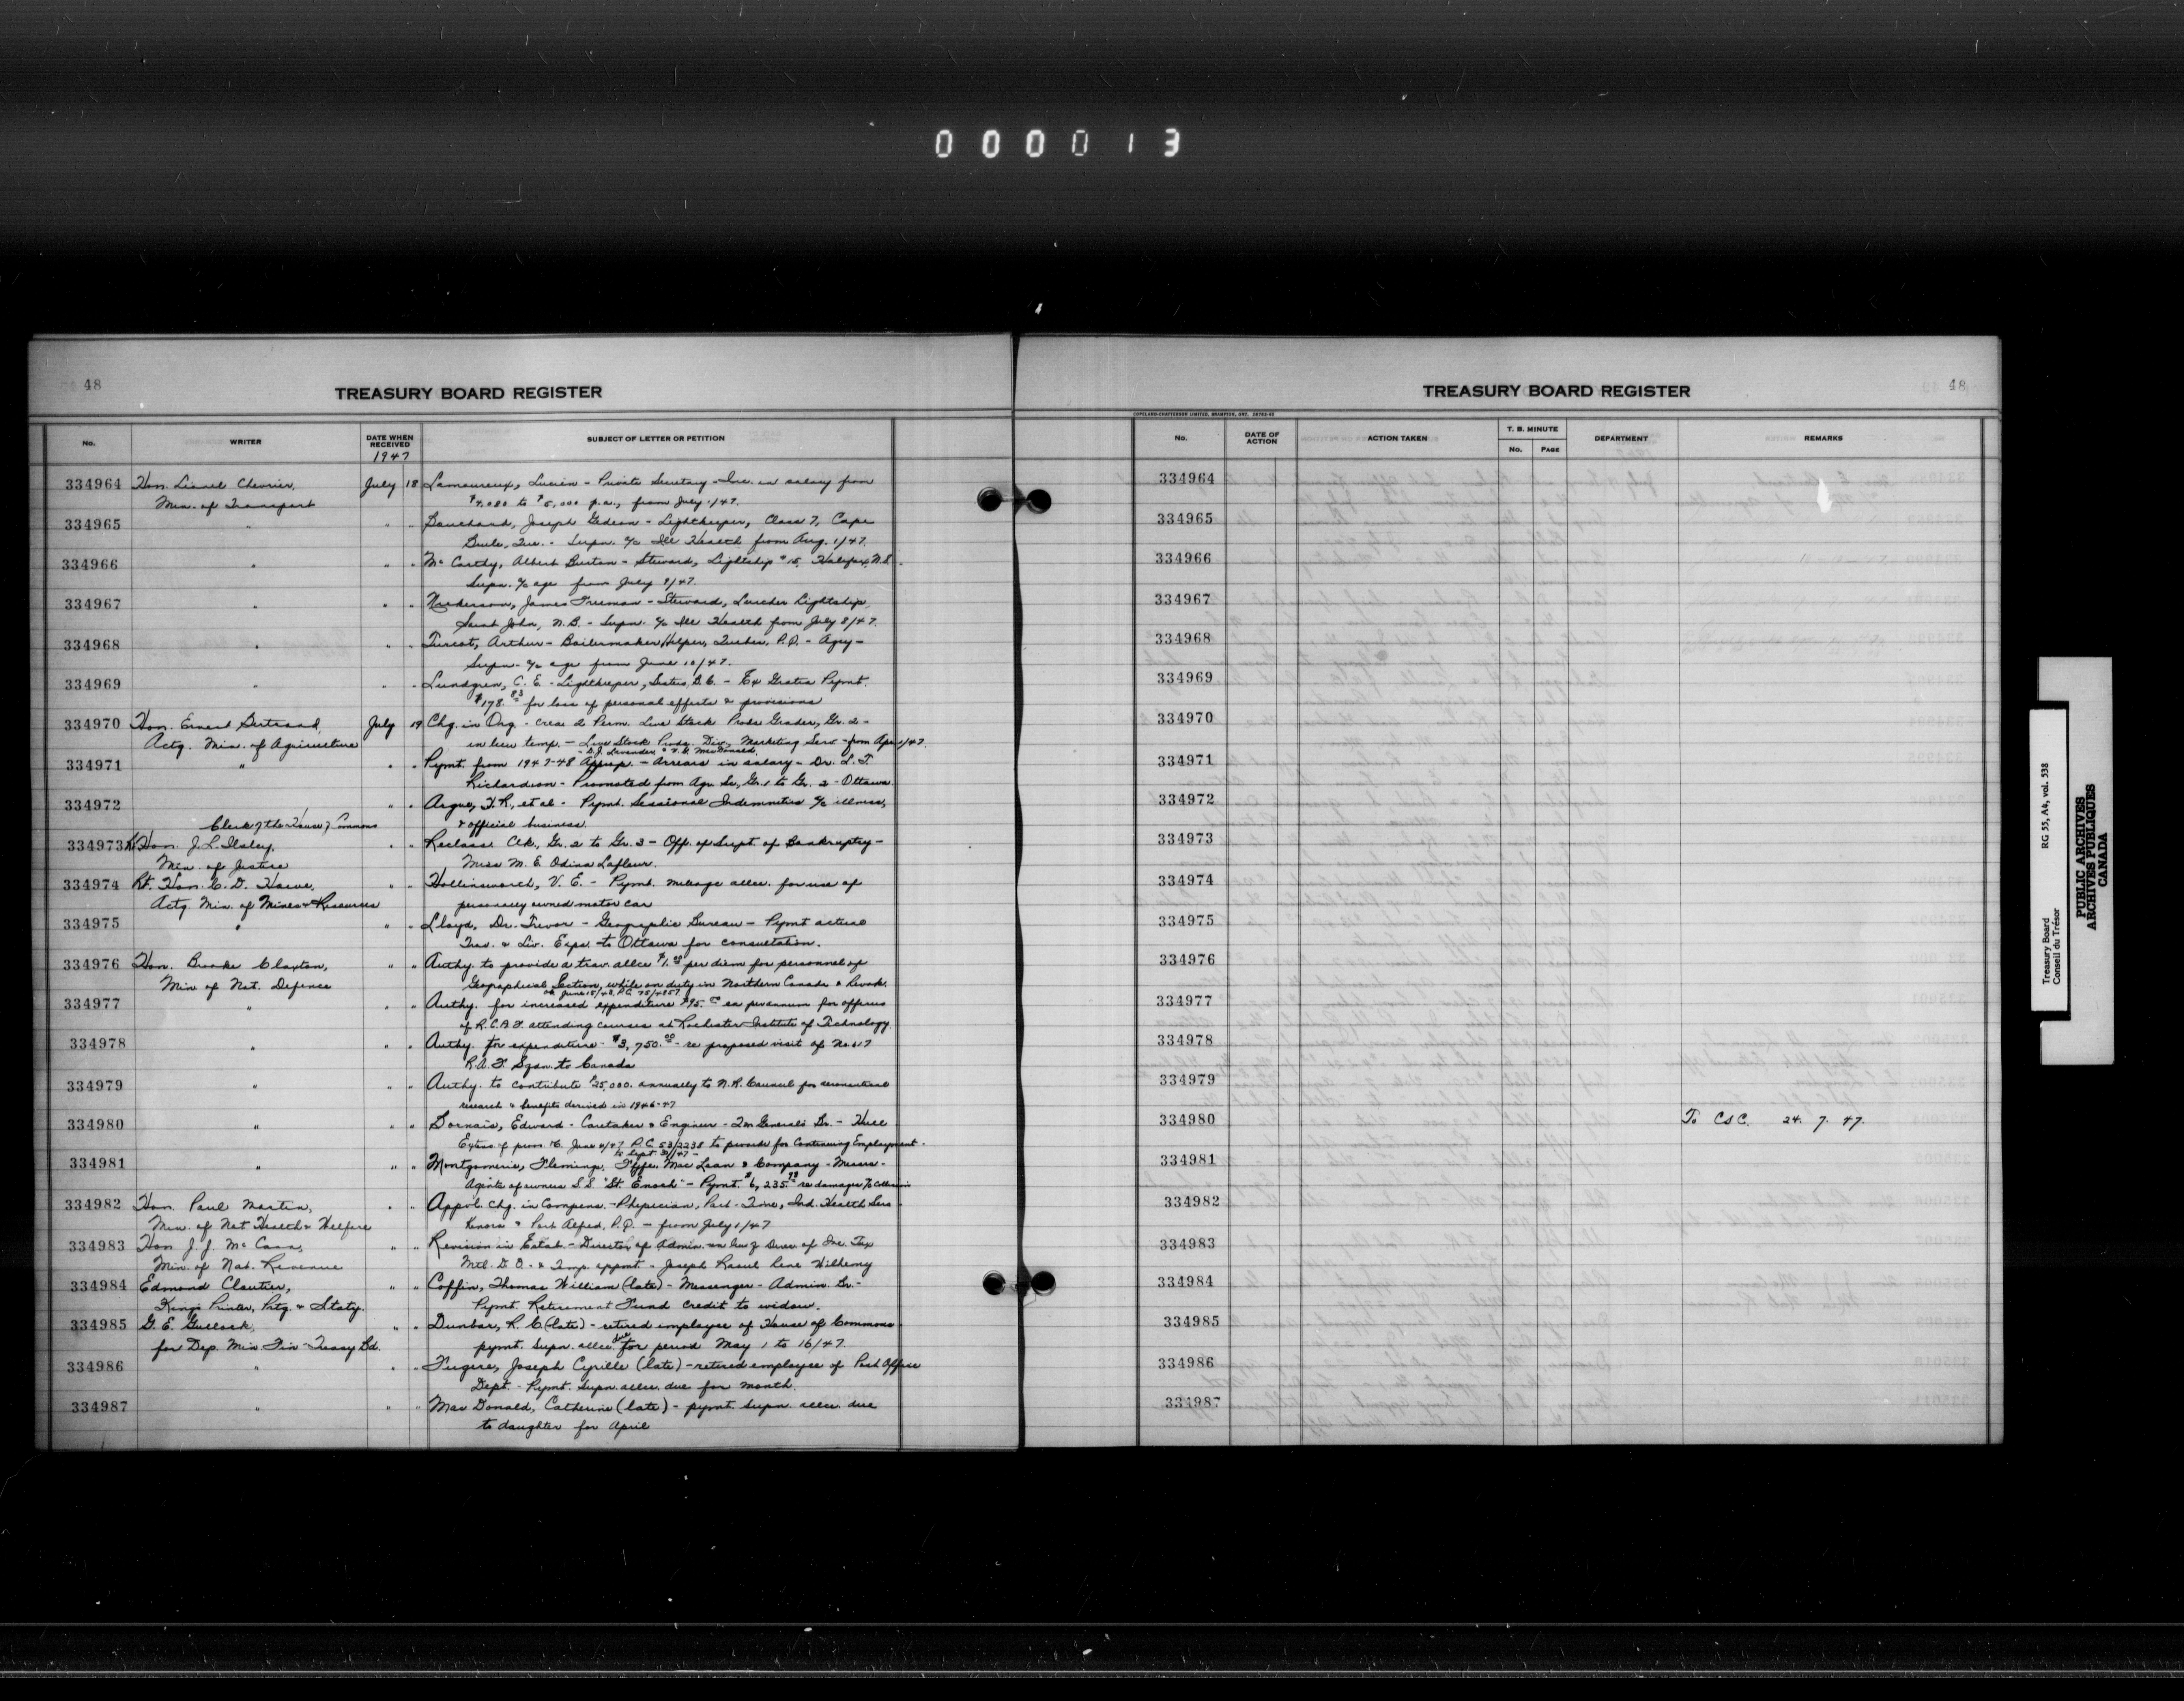 000013
48
TREASURY BOARD REGISTER
No. WRITER DATE WHEN RECEIVED SUBJECT OF LETTER OR PETITION
1947
334964 Hon. Lionel Chevrier, July 18 Lamoureux, Lucien - Private Secretary - Inc. in salary from
Min. of Transport $4,080 to $5,000 p.a., from July 1/47.
334965 " " " Bouchard, Joseph Gedeon - Lightkeeper, Class 7, Cape
Que. - Supn. a/c Ill Health from Aug. 1/47.
334966 " " " McCarthy, Albert Burton - Steward, Lightship #15, Halifax, N.S.
Supn. a/c age from July 9/47.
334967 " " " Nickerson, James Freeman - Steward, Lurcher Lightship,
Saint John, N.B. - Supn. a/c Ill Health from July 8/47.
334968 " " " Turcot, Arthur - Boilermaker Helper, Quebec, P.Q. - Agcy -
Supn. a/c age from June 10/47.
334969 " " " Lundgren, C. E. - Lightkeeper, Sisters, B.C. - Ex Gratia Pymt.
$178.83 for loss of personal effects & provisions
334970 Hon. Ernest Bertrand, July 19 Chg. in Org. - Crea. 2 Perm. Live Stock Prods. Grader, Gr. 2 -
Actg. Min. of Agriculture in lieu temp. - Live Stock Prods. Div., Marketing Serv - from Apr 1/47.
- D.J. Lavender & MacDonald
334971 " " " Pymt. from 1947-48 Approp. - Arrears in salary - Dr. L.T.
Richardson - Promoted from Agr. Sc., Gr. 1 to Gr. 2 - Ottawa
334972 " " Argue, T.R., et al - Pymt. Sessional Indemnities a/c illness,
Clerk of the House of Commons & official business.
334973 Rt Hon. J. L. Ilsley, " " Reclass. Clk., Gr. 2 to Gr. 3 - Off. of Supt. of Bankruptcy -
Min. of Justice Miss M. E. Odina Lafleur.
334974 Rt. Hon. C. D. Howe, " " Hollinsworth, V. E. - Pymt. mileage allce. for use of
Actg. Min. of Mines & Resources personally owned motor car
334975 " " " Lloyd, Dr. Trevor - Geographic Bureau - Pymt actual
Trav. & Liv. Exps. to Ottawa for consultation.
334976 Hon. Brooke Claxton, " " Authy. to provide a trav. allce $1.00 per diem for personnel of
Min of Nat. Defence Geographical Section, while on duty in Northern Canada & Revok.
of June 15/43, P.C. 75/4857
334977 " " " Authy. for increased expenditure $95.00 ea per annum for officers
of R.C.A.F. attending courses at Rochester Institute of Technology
334978 " " " Authy. for expenditure - $3,750.00 - re proposed visit of No. 617
R.A.F. Sqdn. to Canada
334979 " " " Authy. to contribute $25,000. annually to N.R. Council for aeronautical
research & benefits derived in 1946-47
334980 " " " Dornais, Edward - Caretaker & Engineer - Qm Generals Br. - Hull
Extens. of prov. June 4/47 P.C. 53/2238 to provide for Continuing Employment -
to Sept 30/47 -
334981 " " " Montgomerie, Fleming, Fyfe, MacLean & Company - Messrs -
Agents of owners S.S. "St. Enoch" - Pymt. $6,235.98 re damages a/c Collision
334982 Hon. Paul Martin, " " Appvl. Chg. in Compens. - Physician, Part-Time, Ind. Health Servs -
Min. of Nat. Health & Welfare Kenora & Port Alfred, P.Q. - from July 1/47
334983 Hon. J. J. McCann, " " Revision in Estab. - Director of Admin. in lieu of Direc. of Inc. Tax
Min. of Nat. Revenue Mtl. D.O. - & Temp. appmt. - Joseph Raoul Rene Wilhemy
334984 Edmond Cloutier, " " Coffin, Thomas William (late) - Messenger - Admin. Br. -
Kings Printer, Prtg. & Staty. Pymt. Retirement Fund credit to widow.
334985 G. E. Gullock, " " Dunbar, R. C (late) - retired employee of House of Commons
for Dep. Min. Fin - Treasy Bd. pymt. supn. allce. due for period May 1 to 16/47.
334986 " " " Fugere, Joseph Cyrille (late) - retired employee of Post Office
Dept. - Pymt. supn. allce. due for month.
334987 " " " MacDonald, Catherine (late) - pymt. supn. allce. due
to daughter for April
TREASURY BOARD REGISTER
48
COPELAND-CHATTERSON LIMITED, BRAMPTON, ONT.
No. DATE OF ACTION ACTION TAKEN T. B. MINUTE No. PAGE DEPARTMENT REMARKS
334964
334965
334966
334967
334968
334969
334970
334971
334972
334973
334974
334975
334976
334977
334978
334979
334980 To CSC. 24. 7. 47.
334981
334982
334983
334984
334985
334986
334987
Treasury Board RG 55, A4, vol. 538
Conseil du Trésor
PUBLIC ARCHIVES
ARCHIVES PUBLIQUES
CANADA